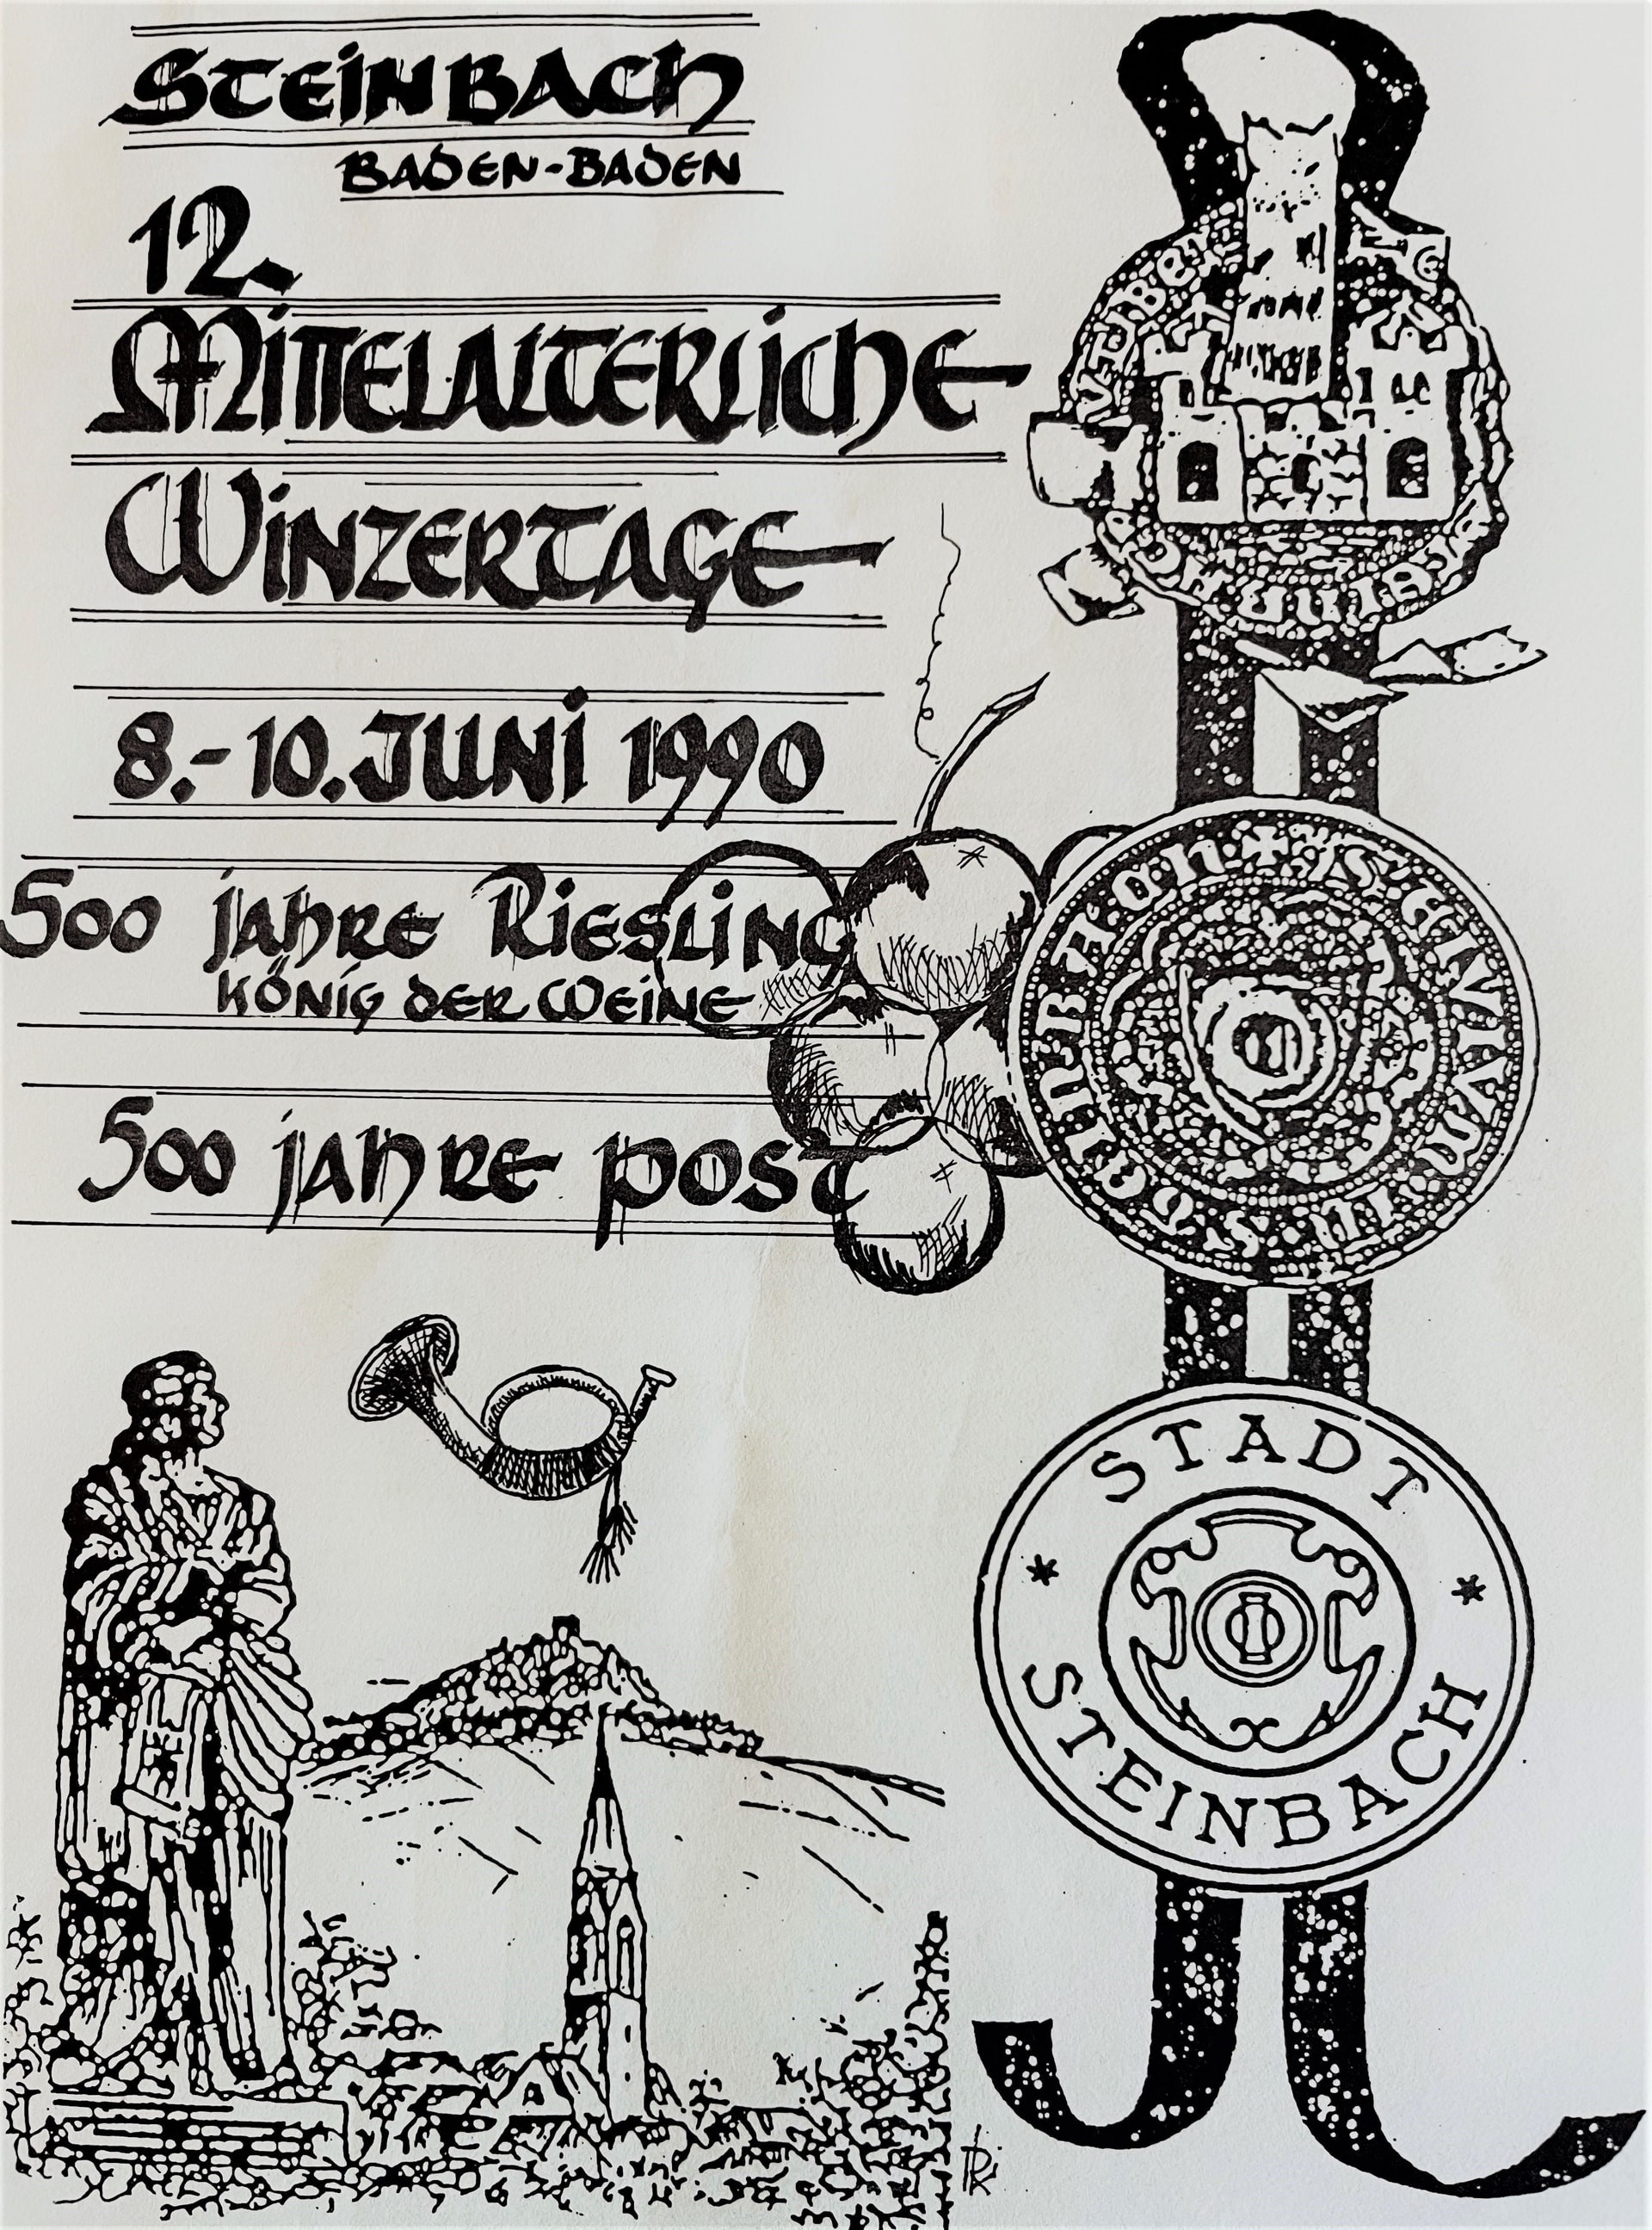 Steinbach
Baden-Baden
12.
Mittelalterliche
Winzertage
8.-10. Juni 1990
500 Jahre Riesling
König der Weine
500 Jahre Post
STADT
* *
STEINBACH